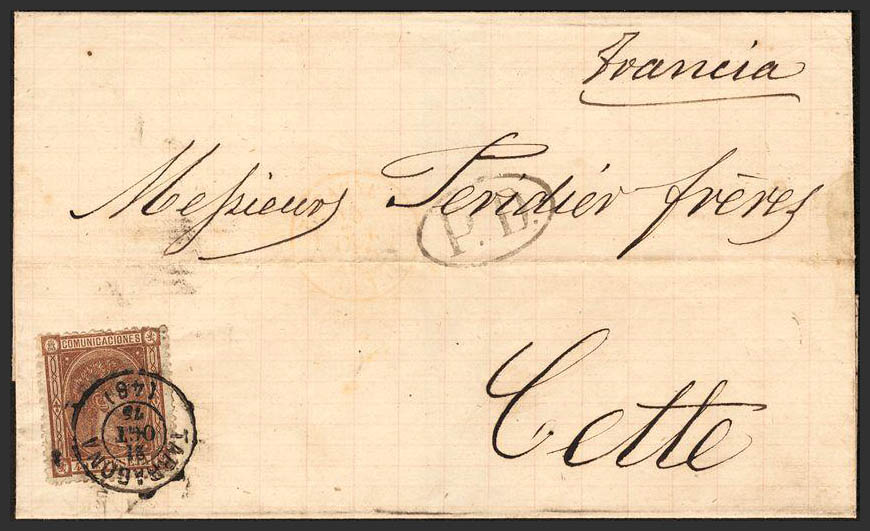 Francia
Messieurs Peridier frères
P.D.
Cette
COMUNICACIONES
TARRAGONA
OCT
75
(46)